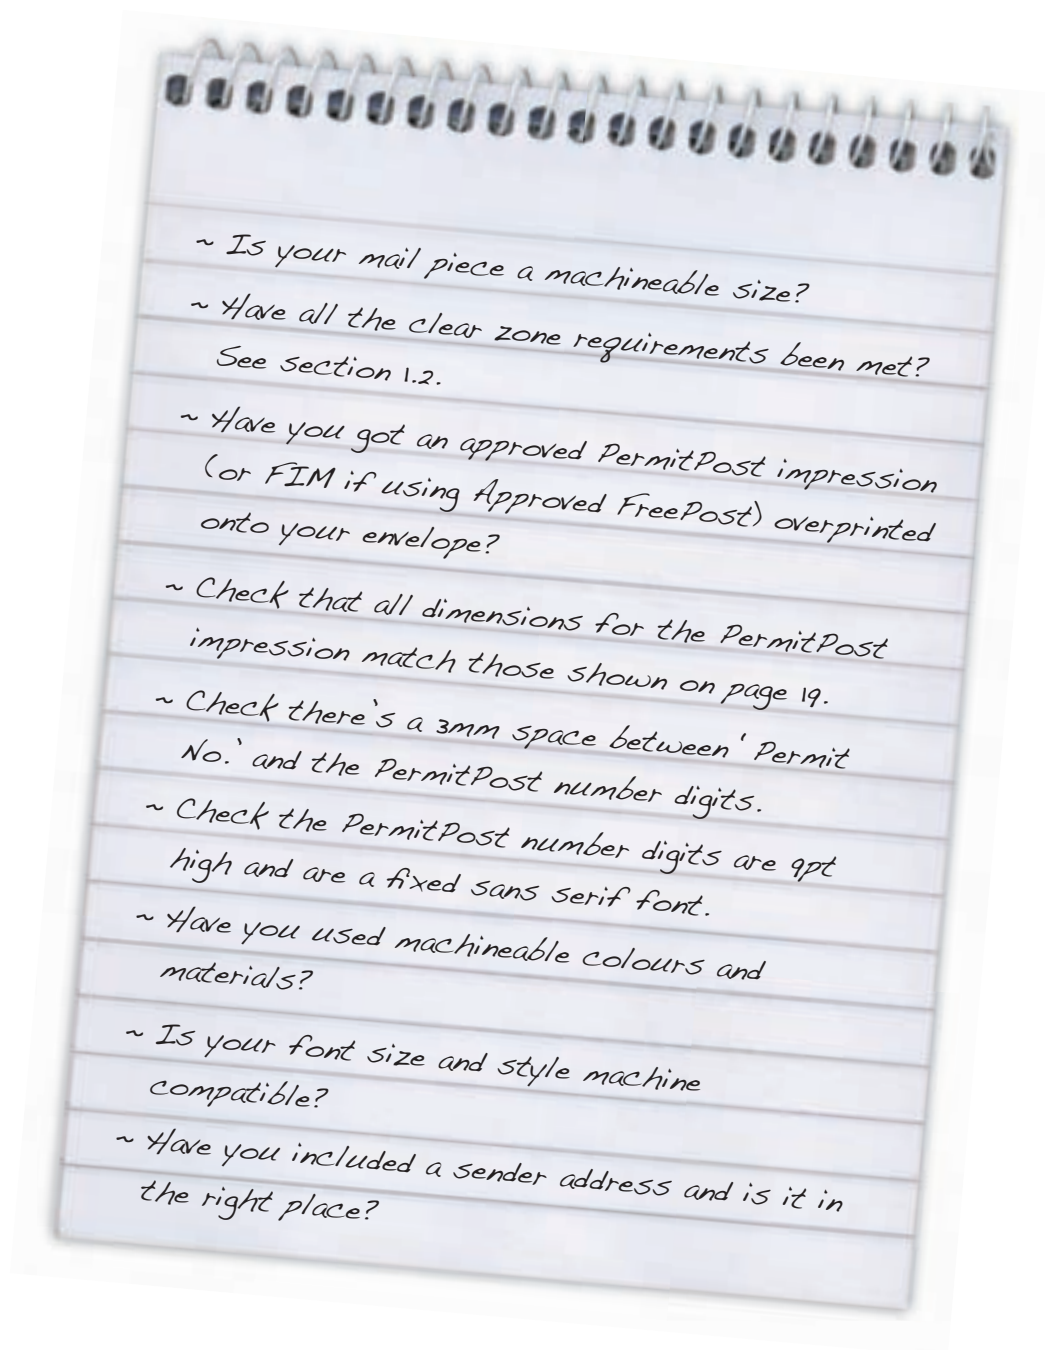 ~ Is your mail piece a machineable size?
~ Have all the clear zone requirements been met?
See section 1.2.
~ Have you got an approved PermitPost impression
(or FIM if using Approved FreePost) overprinted
onto your envelope?
~ Check that all dimensions for the PermitPost
impression match those shown on page 19.
~ Check there`s a 3mm space between ' Permit
No.` and the PermitPost number digits.
~ Check the PermitPost number digits are 9pt
high and are a fixed sans serif font.
~ Have you used machineable colours and
materials?
~ Is your font size and style machine
compatible?
~ Have you included a sender address and is it in
the right place?